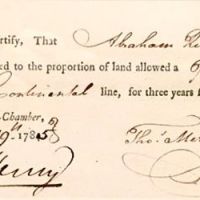 ertify, That Abraham
ed to the proportion of land allowed a
Continental line, for three years
Chamber,
19th 1785
Tho.s Me
Henry